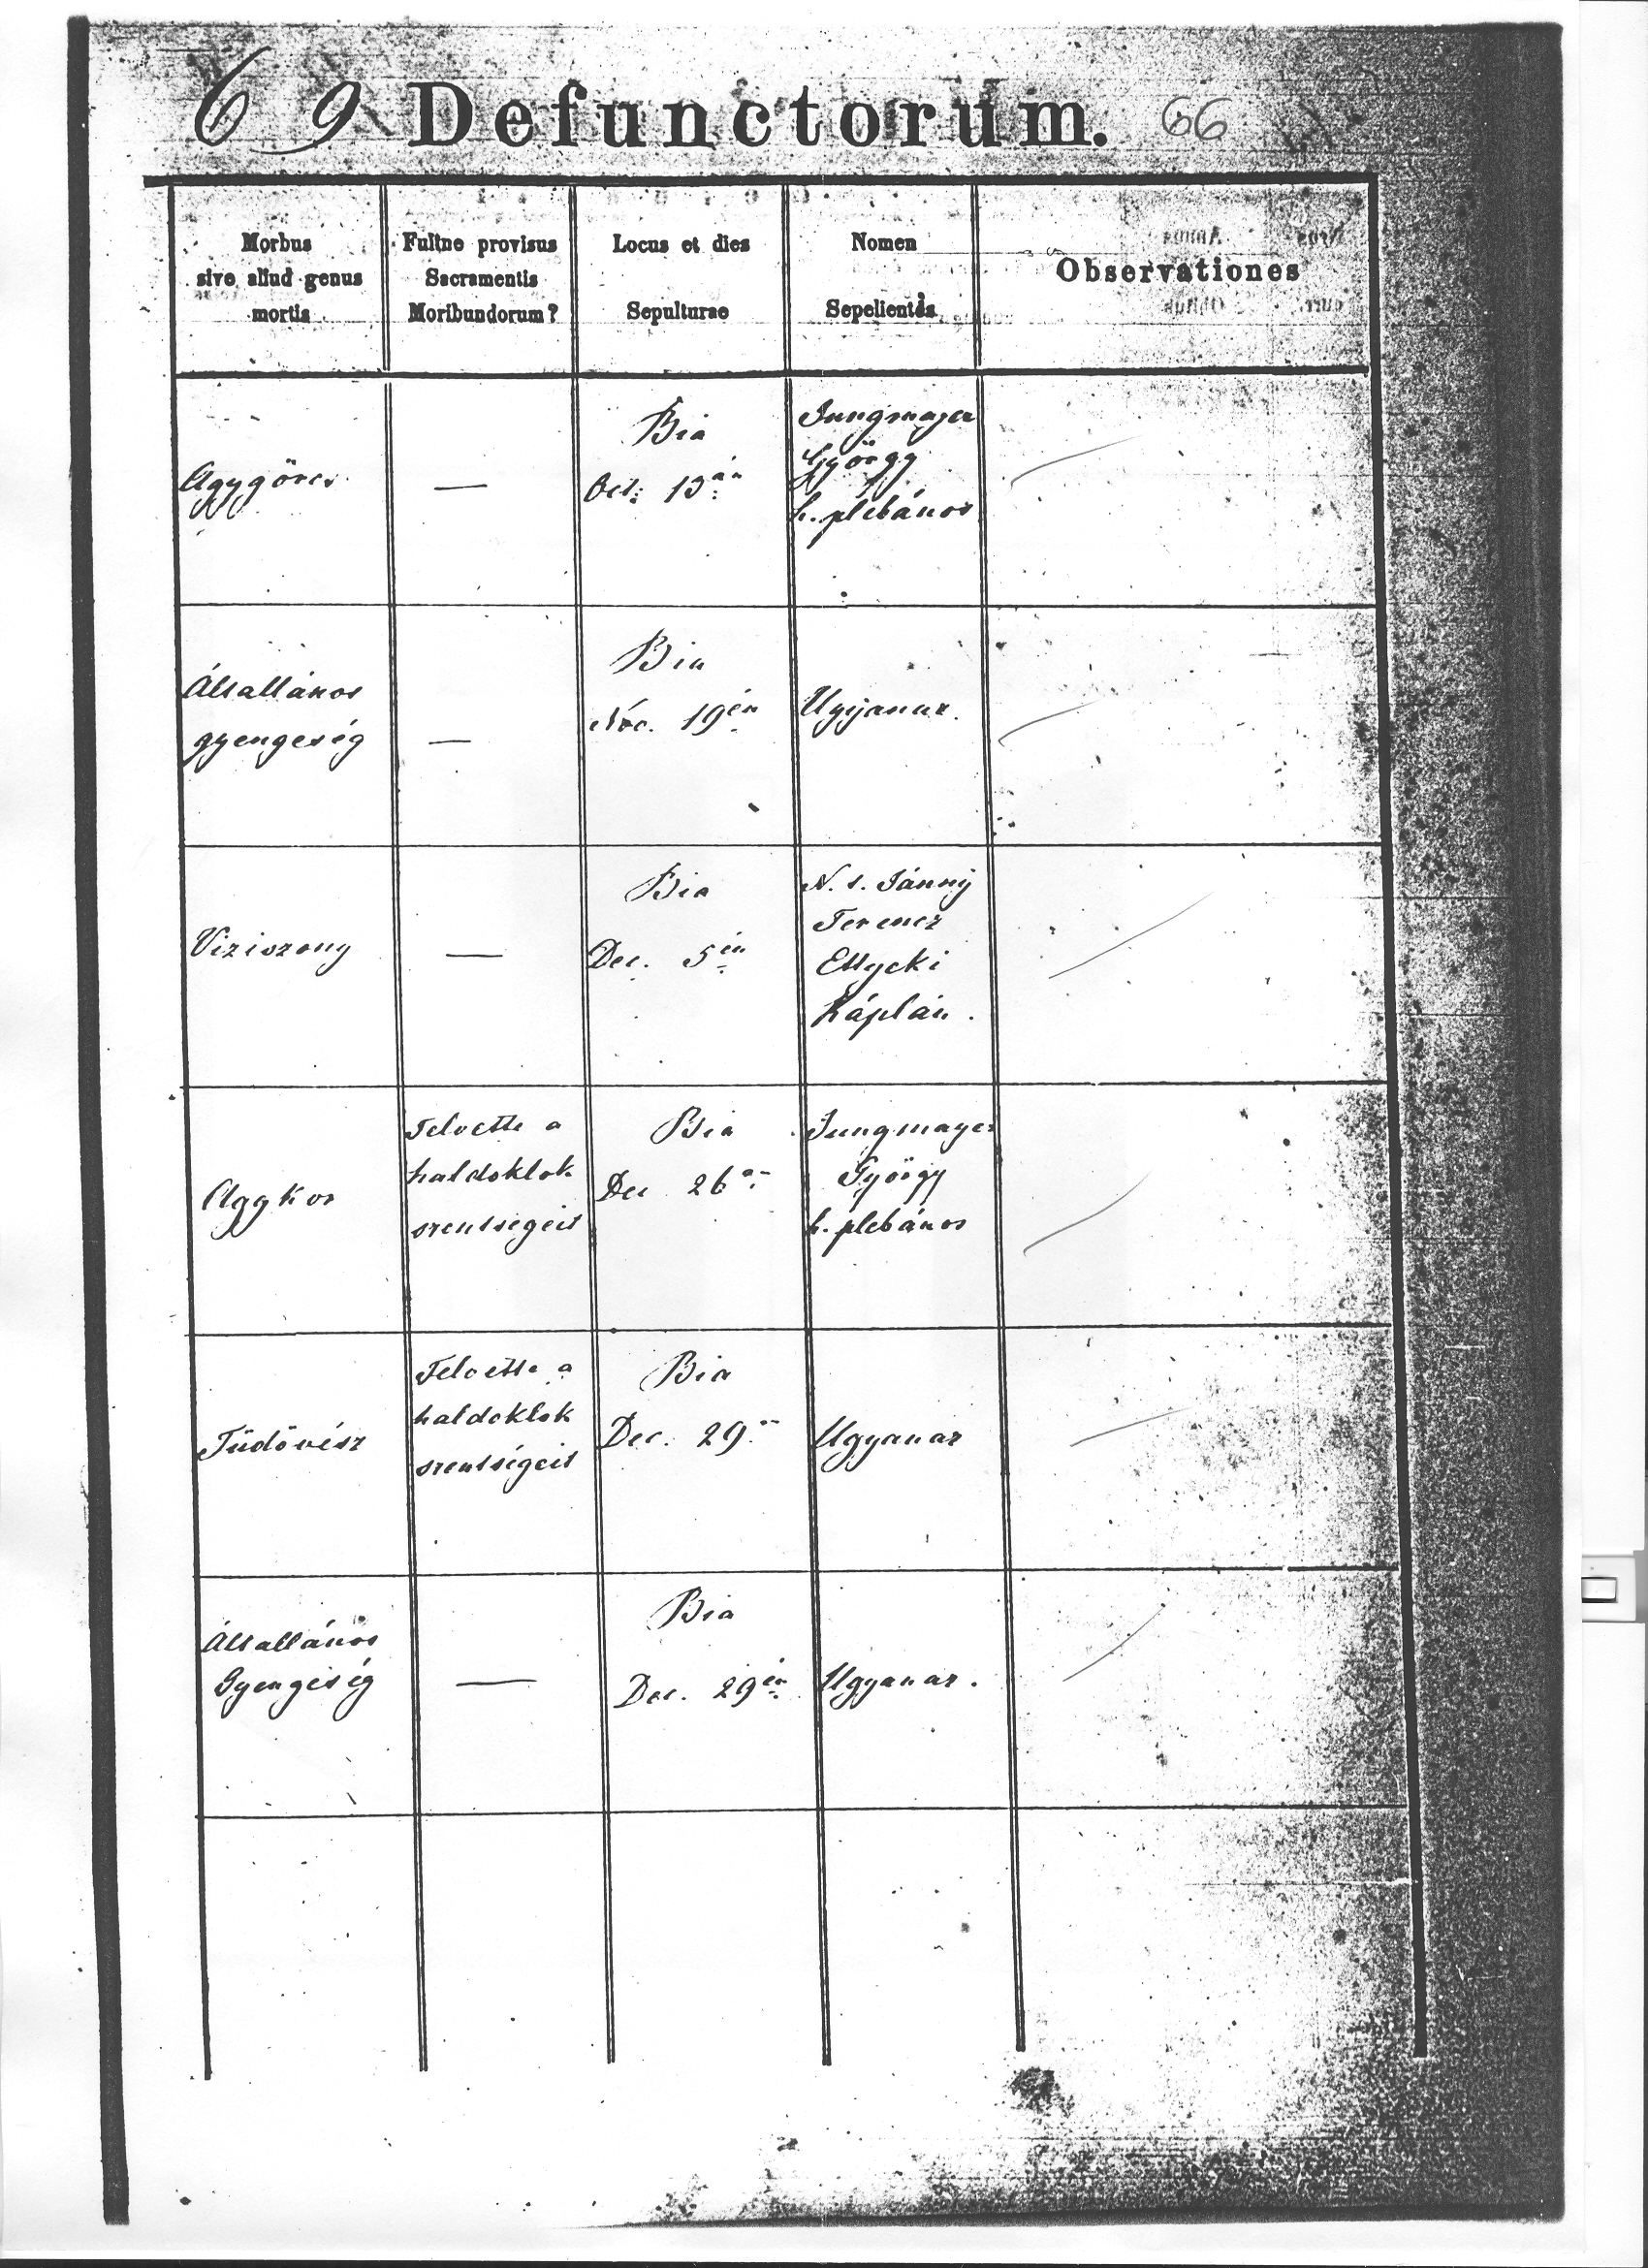 69 Defunctorum. 66
Morbus
sive aliud genus
mortis
Fuitne provisus
Sacramentis
Moribundorum?
Locus et dies
Sepulturae
Nomen
Sepelientis
Observationes
Agygörcs
—
Bia
Oct: 13án
Jungmayer
György
h. plébános
Általlános
gyengeség
—
Bia
Nov. 19én
Ugyanaz.
Viziszony
—
Bia
Dec. 5én
N. s. Jánny
Ferencz
Káplán.
Aggkor
Felvette a
haldoklok
szentségeit
Bia
Dec 26án
Jungmayer
György
h. plébános
Tüdővész
Felvette a
haldoklok
szentségeit
Bia
Dec. 29
Ugyanaz
Általlános
Gyengeség
—
Bia
Dec. 29én
Ugyanaz.